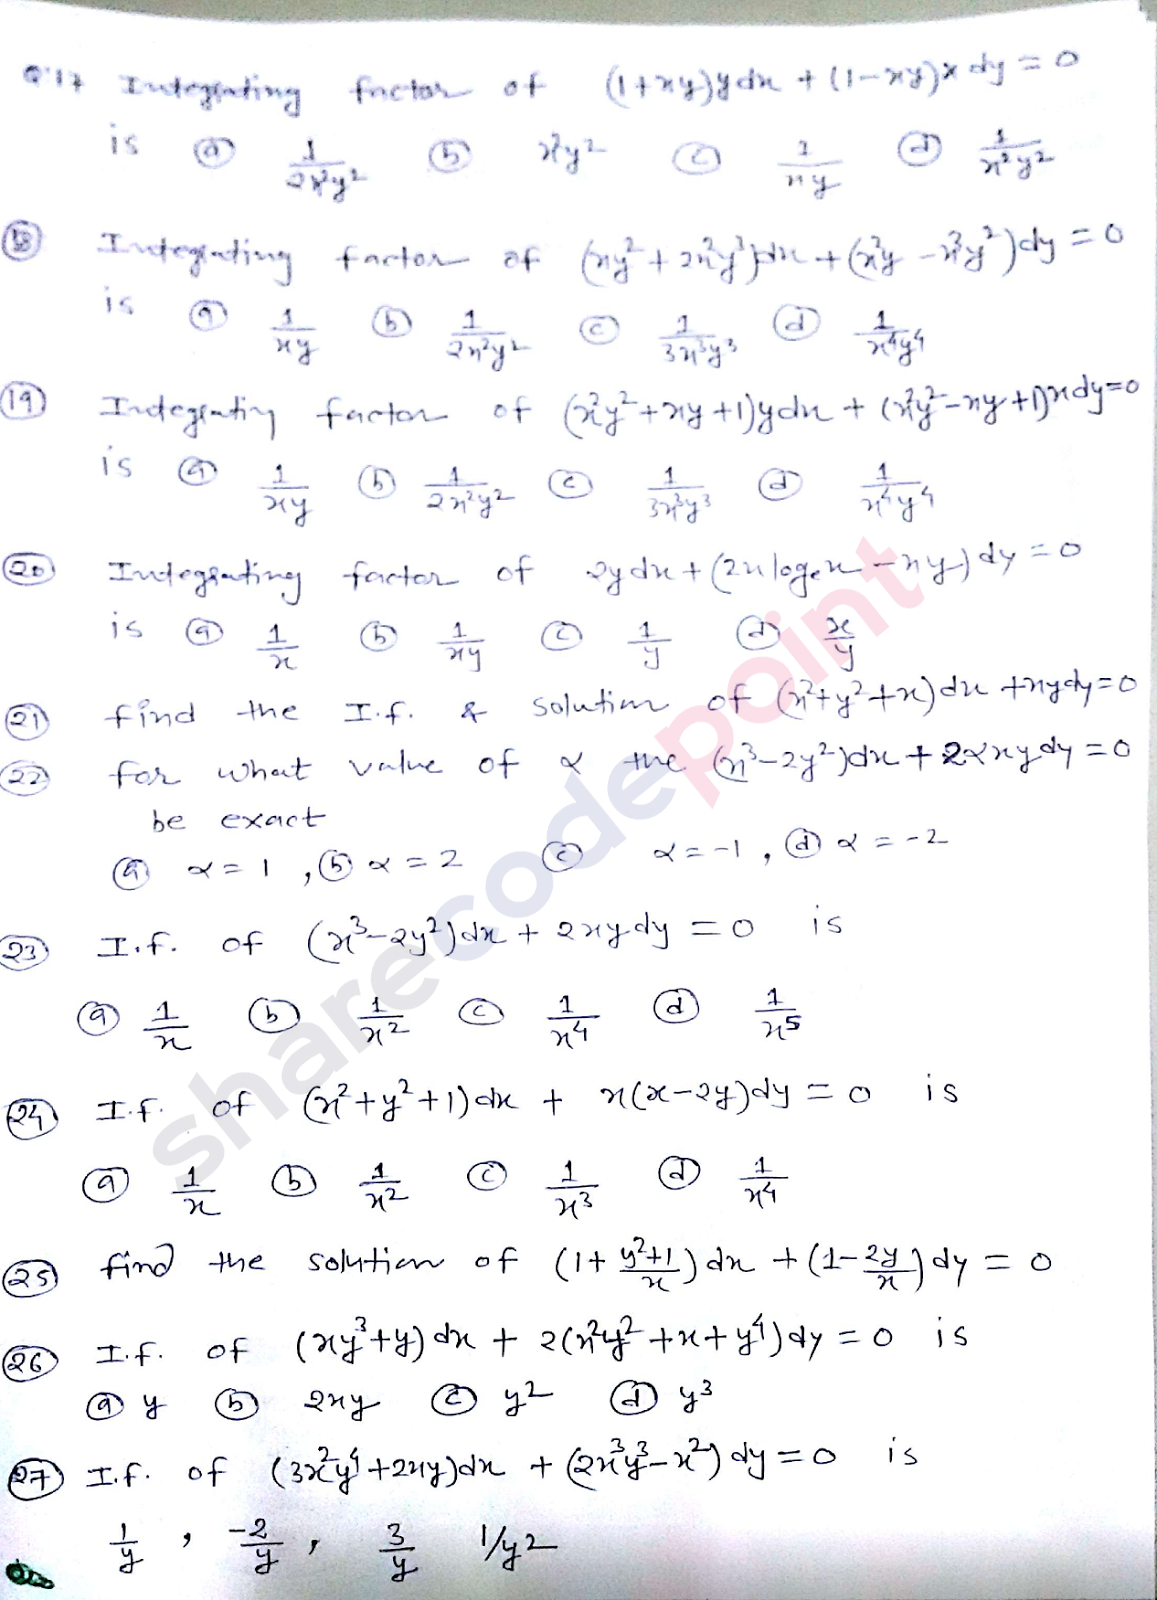 Q.17 Integrating factor of (1+xy)ydx + (1-xy)x dy = 0
is (a) 1/2x²y² (b) x²y² (c) 1/xy (d) 1/x²y²
(18) Integrating factor of (xy²+2x²y³)dx + (x²y - x³y²)dy = 0
is (a) 1/xy (b) 1/2x²y² (c) 1/3x³y³ (d) 1/x⁴y⁴
(19) Integrating factor of (x²y²+xy+1)ydx + (x²y²-xy+1)xdy=0
is (a) 1/xy (b) 1/2x²y² (c) 1/3x³y³ (d) 1/x⁴y⁴
(20) Integrating factor of 2ydx + (2x logₑx - xy)dy = 0
is (a) 1/x (b) 1/xy (c) 1/y (d) x/y
(21) find the I.f. & solution of (x²+y²+x)dx + xydy=0
(22) for what value of α the (x³-2y²)dx + 2αxydy = 0
be exact
(a) α = 1, (b) α = 2 (c) α = -1, (d) α = -2
(23) I.f. of (x³-2y²)dx + 2xydy = 0 is
(a) 1/x (b) 1/x² (c) 1/x⁴ (d) 1/x⁵
(24) I.f. of (x²+y²+1)dx + x(x-2y)dy = 0 is
(a) 1/x (b) 1/x² (c) 1/x³ (d) 1/x⁴
(25) find the solution of (1+ y²+1/x) dx + (1- 2y/x) dy = 0
(26) I.f. of (xy³+y)dx + 2(x²y²+x+y⁴)dy = 0 is
(a) y (b) 2xy (c) y² (d) y³
(27) I.f. of (3x²y⁴+2xy)dx + (2x³y³-x²)dy=0 is
1/y , -2/y , 3/y 1/y²
sharecodepoint